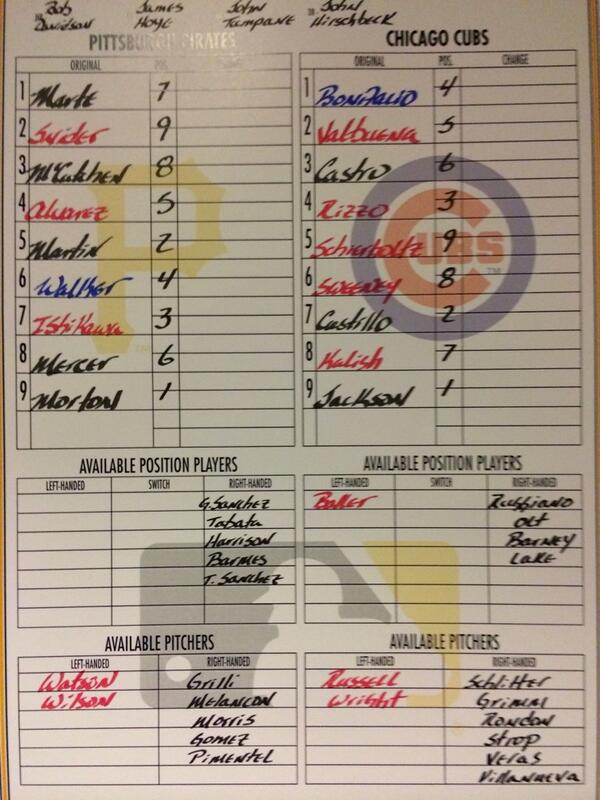 Bob Davidson
James Hoye
John Tumpane
John Hirschbeck
PITTSBURGH PIRATES
ORIGINAL POS. CHANGE
1 Marte 7
2 Snider 9
3 McCutchen 8
4 Alvarez 5
5 Martin 2
6 Walker 4
7 Ishikawa 3
8 Mercer 6
9 Morton 1
CHICAGO CUBS
ORIGINAL POS. CHANGE
1 Bonifacio 4
2 Valbuena 5
3 Castro 6
4 Rizzo 3
5 Schierholtz 9
6 Sweeney 8
7 Castillo 2
8 Kalish 7
9 Jackson 1
CUBS
TM
TM
AVAILABLE POSITION PLAYERS
LEFT-HANDED SWITCH RIGHT-HANDED
G. Sanchez
Tabata
Harrison
Barmes
T. Sanchez
AVAILABLE POSITION PLAYERS
LEFT-HANDED SWITCH RIGHT-HANDED
Baker Ruggiano
Olt
Barney
Lake
AVAILABLE PITCHERS
LEFT-HANDED RIGHT-HANDED
Watson Grilli
Wilson Melancon
Morris
Gomez
Pimentel
AVAILABLE PITCHERS
LEFT-HANDED RIGHT-HANDED
Russell Schlitter
Wright Grimm
Rondon
Strop
Veras
Villanueva